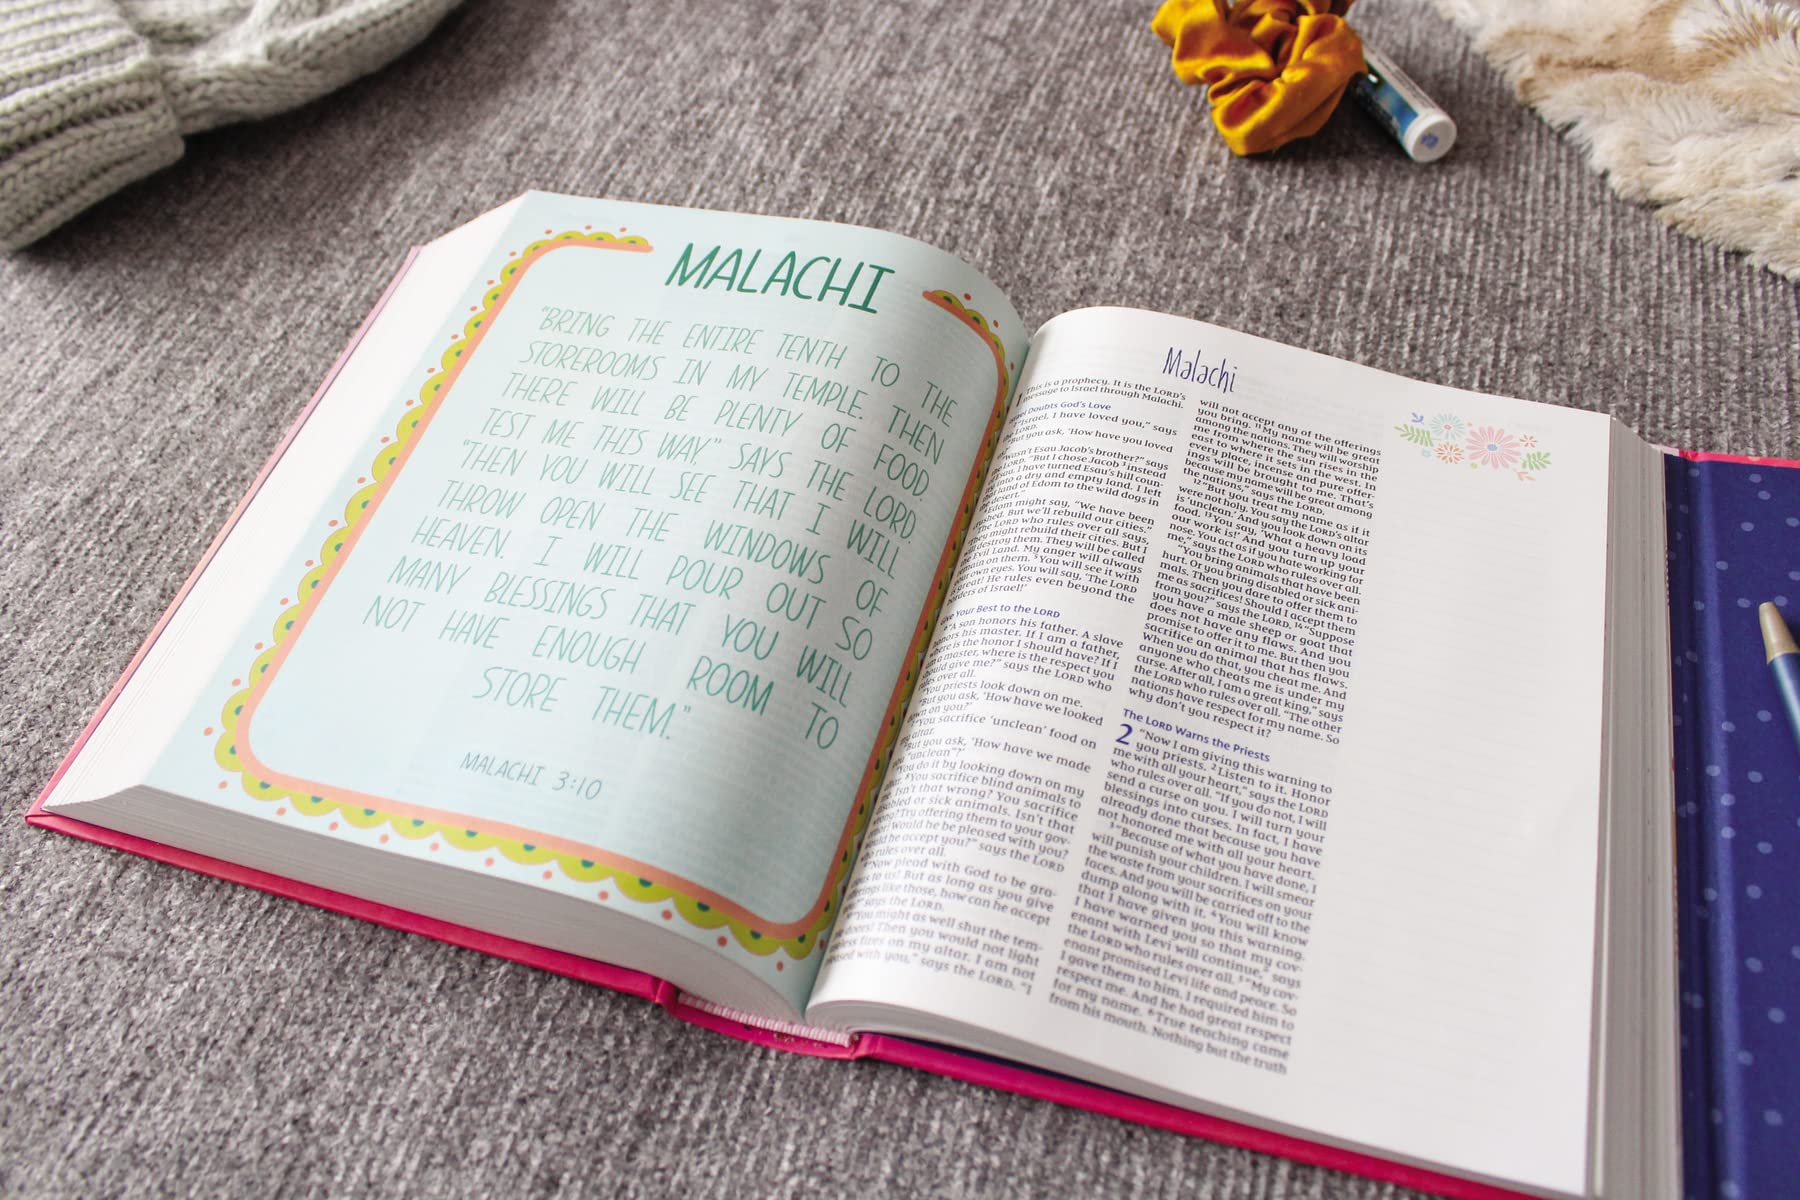 MALACHI
"BRING THE ENTIRE TENTH TO THE
STOREROOMS IN MY TEMPLE. THEN
THERE WILL BE PLENTY OF FOOD.
TEST ME THIS WAY," SAYS THE LORD.
"THEN YOU WILL SEE THAT I WILL
THROW OPEN THE WINDOWS OF
HEAVEN. I WILL POUR OUT SO
MANY BLESSINGS THAT YOU WILL
NOT HAVE ENOUGH ROOM TO
STORE THEM."
MALACHI 3:10
Malachi
1 This is a prophecy. It is the LORD's
message to Israel through Malachi.
Doubts God's Love
"Israel, I have loved you," says
the LORD.
"But you ask, 'How have you loved
"Wasn't Esau Jacob's brother?" says
the LORD. "But I chose Jacob 3 instead
Esau. I have turned Esau's hill coun-
into a dry and empty land. I left
that land of Edom to the wild dogs in
desert."
Edom might say, "We have been
crushed. But we'll rebuild our cities."
The LORD who rules over all says,
"They might rebuild their cities. But I
will destroy them. They will be called
the Evil Land. My anger will always
remain on them. 5 You will see it with
your own eyes. You will say, 'The LORD
is great! He rules even beyond the
borders of Israel!'
Your Best to the LORD
6 "A son honors his father. A slave
honors his master. If I am a father,
where is the honor I should have? If I
am a master, where is the respect you
should give me?" says the LORD who
rules over all.
"You priests look down on me.
"But you ask, 'How have we looked
down on you?'
7 "You sacrifice 'unclean' food on
my altar.
"But you ask, 'How have we made
you "unclean"?'
"You do it by looking down on my
8 You sacrifice blind animals to
Isn't that wrong? You sacrifice
disabled or sick animals. Isn't that
wrong? Try offering them to your gov-
ernor! Would he be pleased with you?
Would he accept you?" says the LORD
who rules over all.
9 "Now plead with God to be gra-
cious to us! But as long as you give
offerings like those, how can he accept
you?" says the LORD.
10 "You might as well shut the tem-
doors! Then you would not light
useless fires on my altar. I am not
pleased with you," says the LORD. "I
will not accept any of the offerings
you bring. 11 My name will be great
among the nations. They will worship
me from where the sun rises in the
east to where it sets in the west. In
every place, incense and pure offer-
ings will be brought to me. That's
because my name will be great among
the nations," says the LORD.
12 "But you treat my name as if it
were not holy. You say the LORD's altar
is 'unclean.' And you look down on its
food. 13 You say, 'What a heavy load
our work is!' And you turn up your
nose. You act as if you hate working for
me," says the LORD who rules over all.
"You bring animals that have been
hurt. Or you bring disabled or sick ani-
mals. Then you dare to offer them to
me as sacrifices! Should I accept them
from you?" says the LORD. 14 "Suppose
you have a male sheep or goat that
does not have any flaws. And you
promise to offer it to me. But then you
sacrifice an animal that has flaws.
When you do that, you cheat me. And
anyone who cheats me is under my
curse. After all, I am a great king," says
the LORD who rules over all. "The other
nations have respect for my name. So
why don't you respect it?
The LORD Warns the Priests
2 "Now I am giving this warning to
you priests. 2 Listen to it. Honor
me with all your heart," says the LORD
who rules over all. "If you do not, I will
send a curse on you. I will turn your
blessings into curses. In fact, I have
already done that because you have
not honored me with all your heart.
3 "Because of what you have done, I
will punish your children. I will smear
the waste from your sacrifices on your
faces. And you will be carried off to the
dump along with it. 4 You will know
that I have given you this warning.
I have warned you so that my cov-
enant with Levi will continue," says
the LORD who rules over all. 5 "My cov-
enant promised Levi life and peace. So
I gave them to him. I required him to
respect me. And he had great respect
for my name. 6 True teaching came
from his mouth. Nothing but the truth